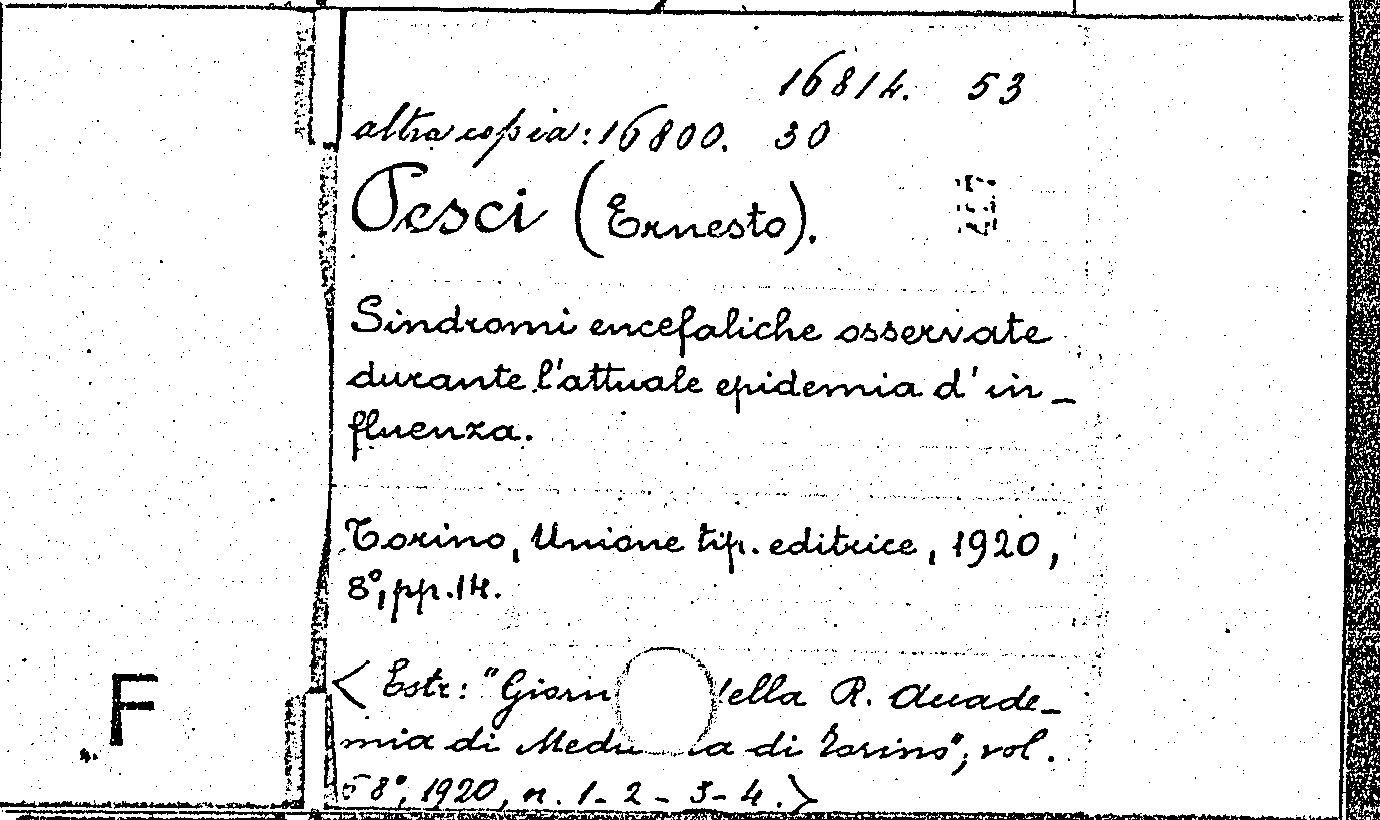 16814. 53
altra copia: 16800. 30
Pesci (Ernesto).
Sindromi encefaliche osservate
durante l'attuale epidemia d'in_
fluenza.
Torino, Unione tip. editrice, 1920,
8°, pp. 14.
< Estr: "Giorn della R. Accade_
mia di Medi a di Torino", vol.
58°, 1920, n. 1-2-3-4.>
F